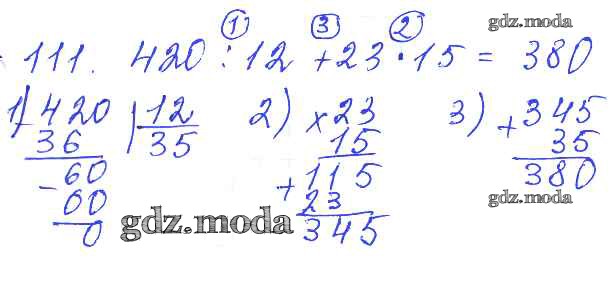 gdz.moda
1 3 2
111. 420 : 12 + 23 · 15 = 380
1) 420 | 12 2) × 23 3) + 345
36 35 15 35
- 60 + 115 380
60 23 gdz.moda
0 gdz.moda 345